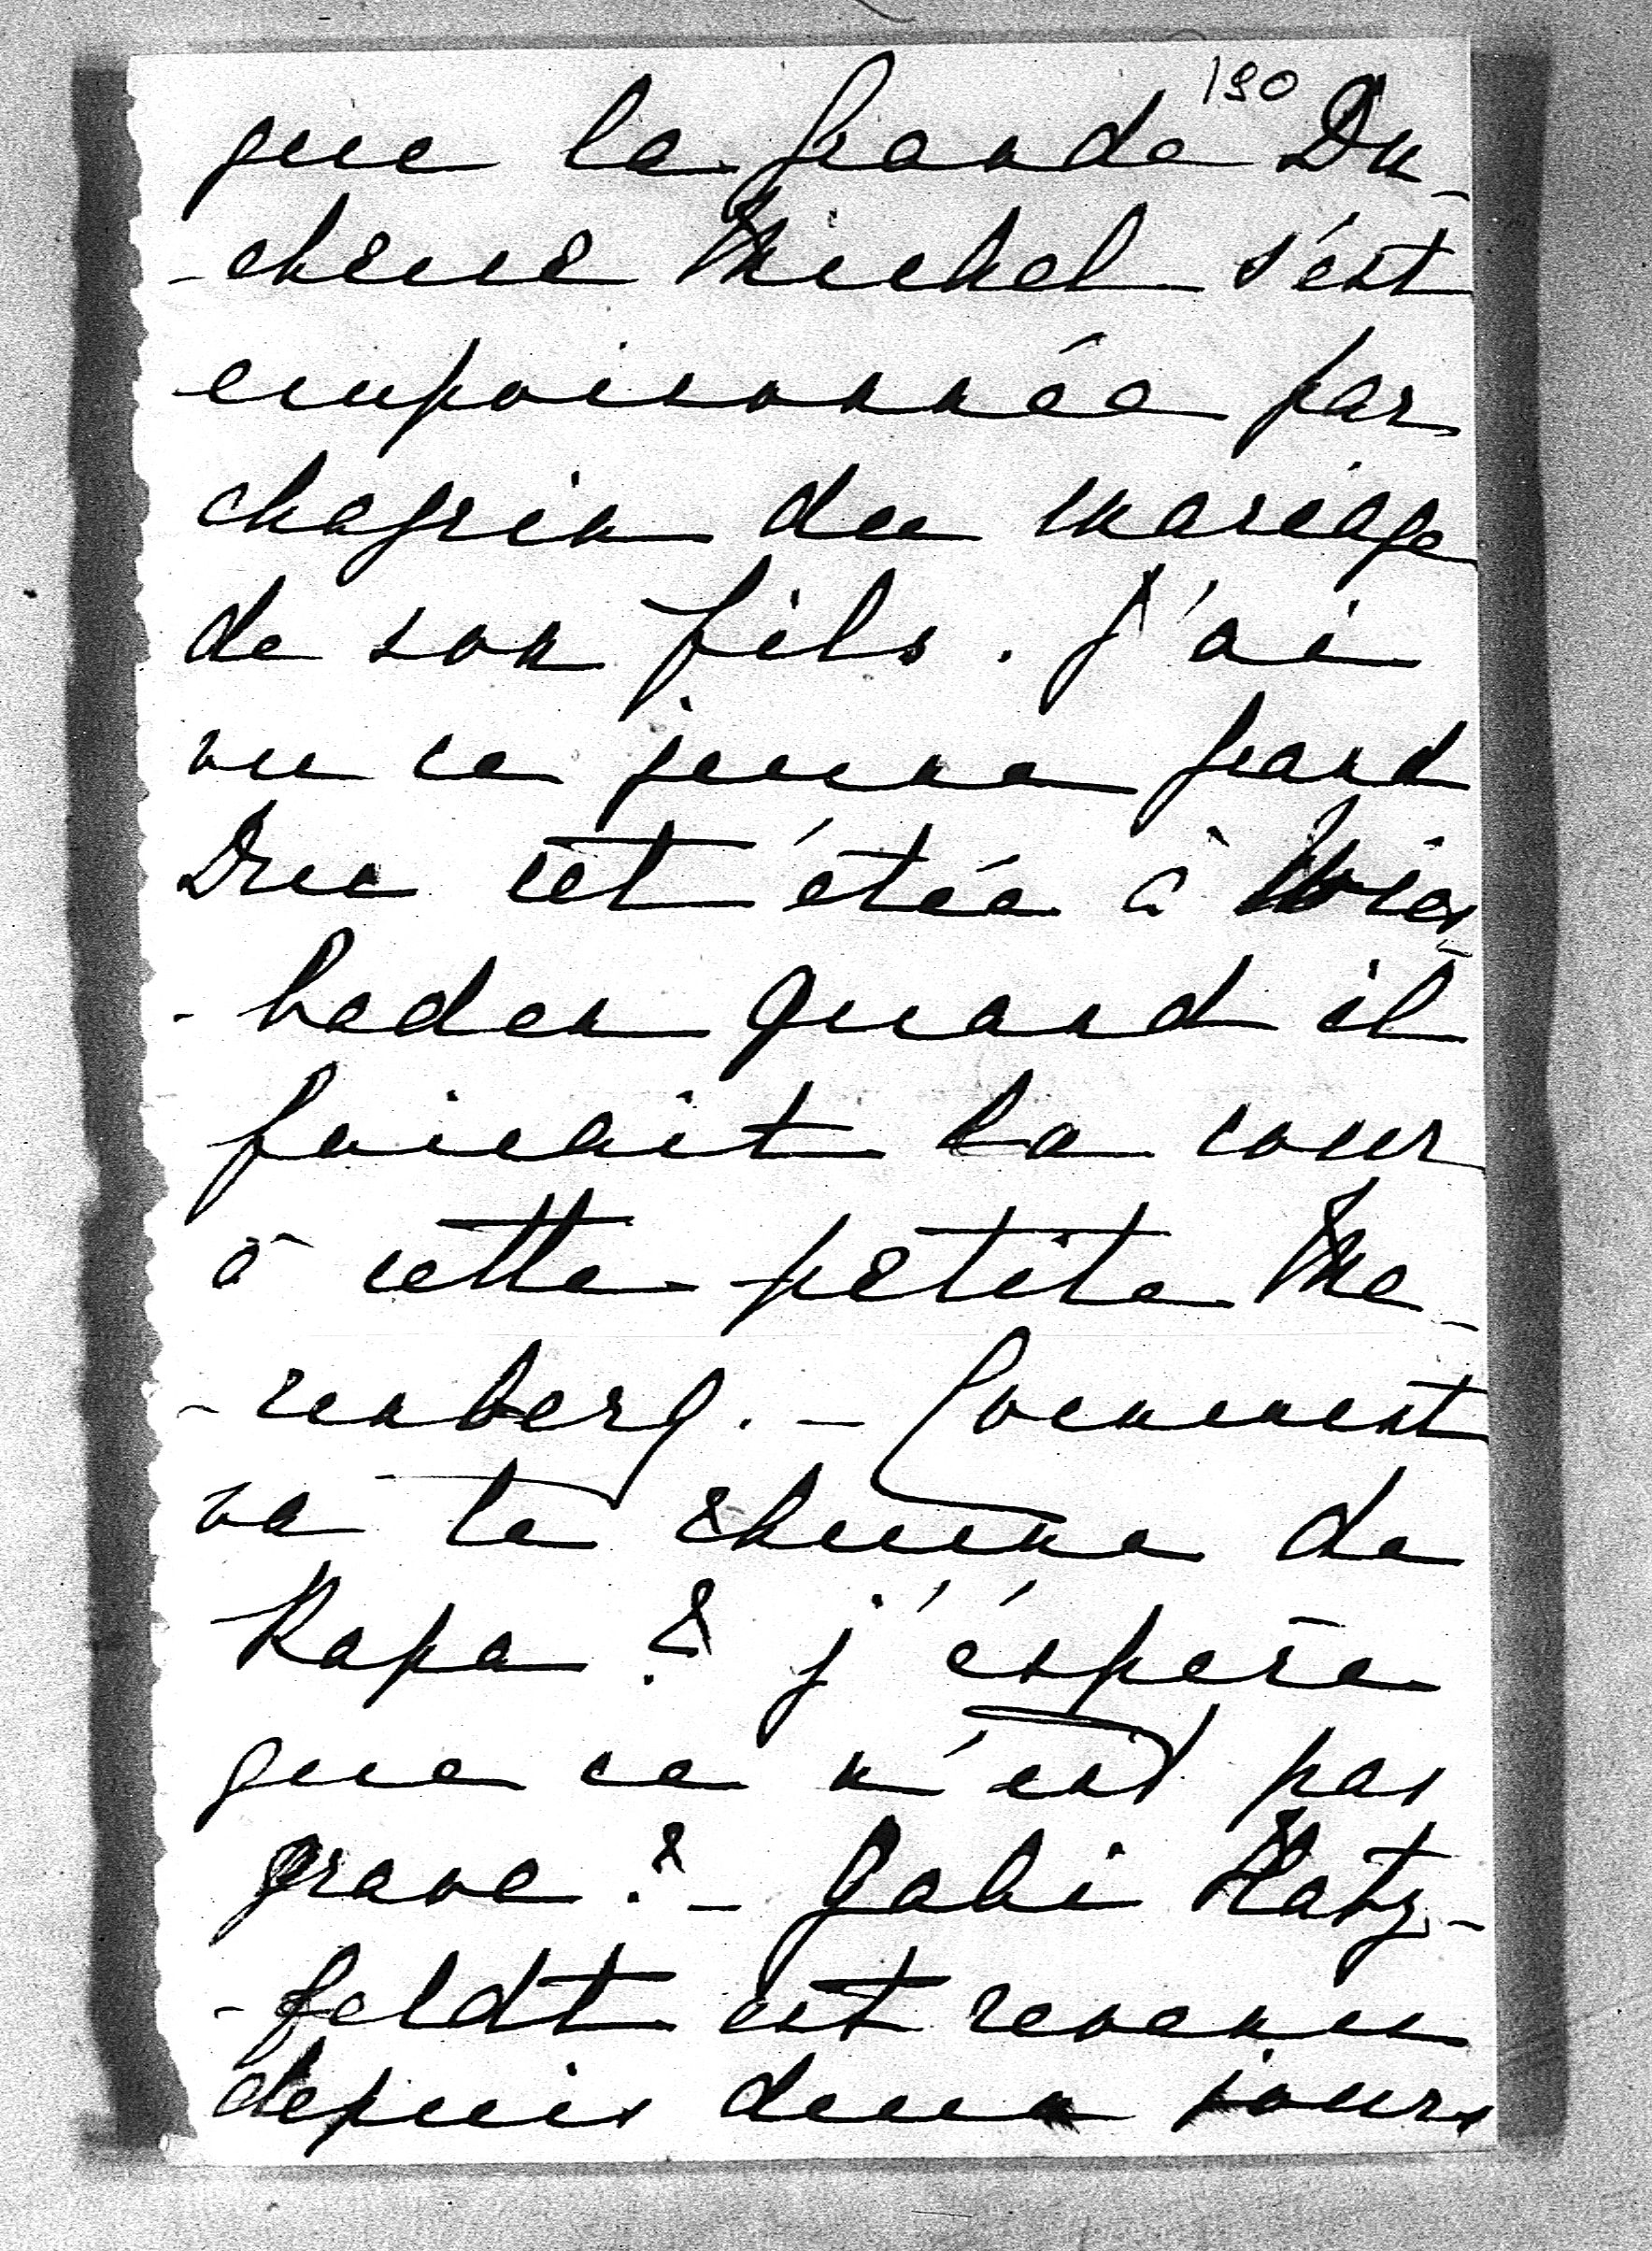 190
que la grande Du-
-chesse Michel s'est
empoisonnée par
chagrin du mariage
de son fils. J'ai
vu ce jeune grand
Duc cet étée à Wies-
-baden quand il
faisait la cour
à cette petite Me-
-renberg. - Comment
va le rhume de
Papa? j'éspère
que ce n'est pas
grave? - Gabi Hatz-
-feldt est revenu
depuis deux jours